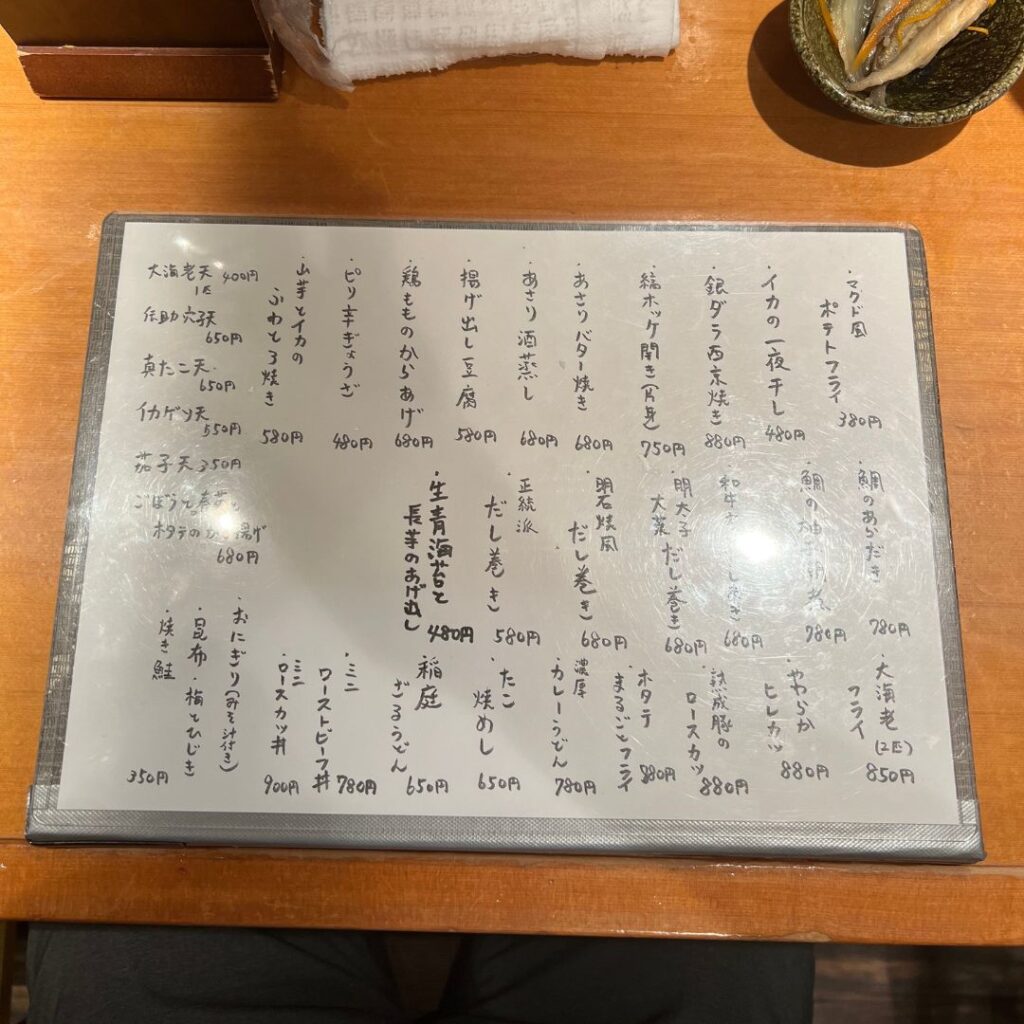 ・マクド風
ポテトフライ
380円
・イカの一夜干し
480円
・銀ダラ西京焼き
880円
・縞ホッケ開き(片身)
750円
・あさりバター焼き
680円
・あさり酒蒸し
680円
・揚げ出し豆腐
580円
・鶏もものからあげ
680円
・ピリ辛ぎょうざ
480円
・山芋とイカの
ふわとろ焼き
580円
大海老天 400円
1匹
伝助穴子天
650円
真たこ天
650円
イカゲソ天
550円
茄子天 350円
ごぼうと
ホタテのかき揚げ
680円
・鯛のあらだき
780円
・鯛の
780円
・和牛
680円
・明太子
大葉 だし巻き
680円
・明石焼風
だし巻き
680円
・正統派
だし巻き
580円
・生青海苔と
長芋のあげ出し
480円
・大海老
フライ (2匹)
850円
・やわらか
ヒレカツ
880円
・熟成豚の
ロースカツ
880円
・ホタテ
まるごとフライ
880円
・濃厚
カレーうどん
780円
・たこ
焼めし
650円
・稲庭
ざるうどん
650円
・ミニ
ローストビーフ丼
780円
・ミニ
ロースカツ丼
900円
・おにぎり(みそ汁付き)
・昆布・梅とひじき
・焼き鮭
350円